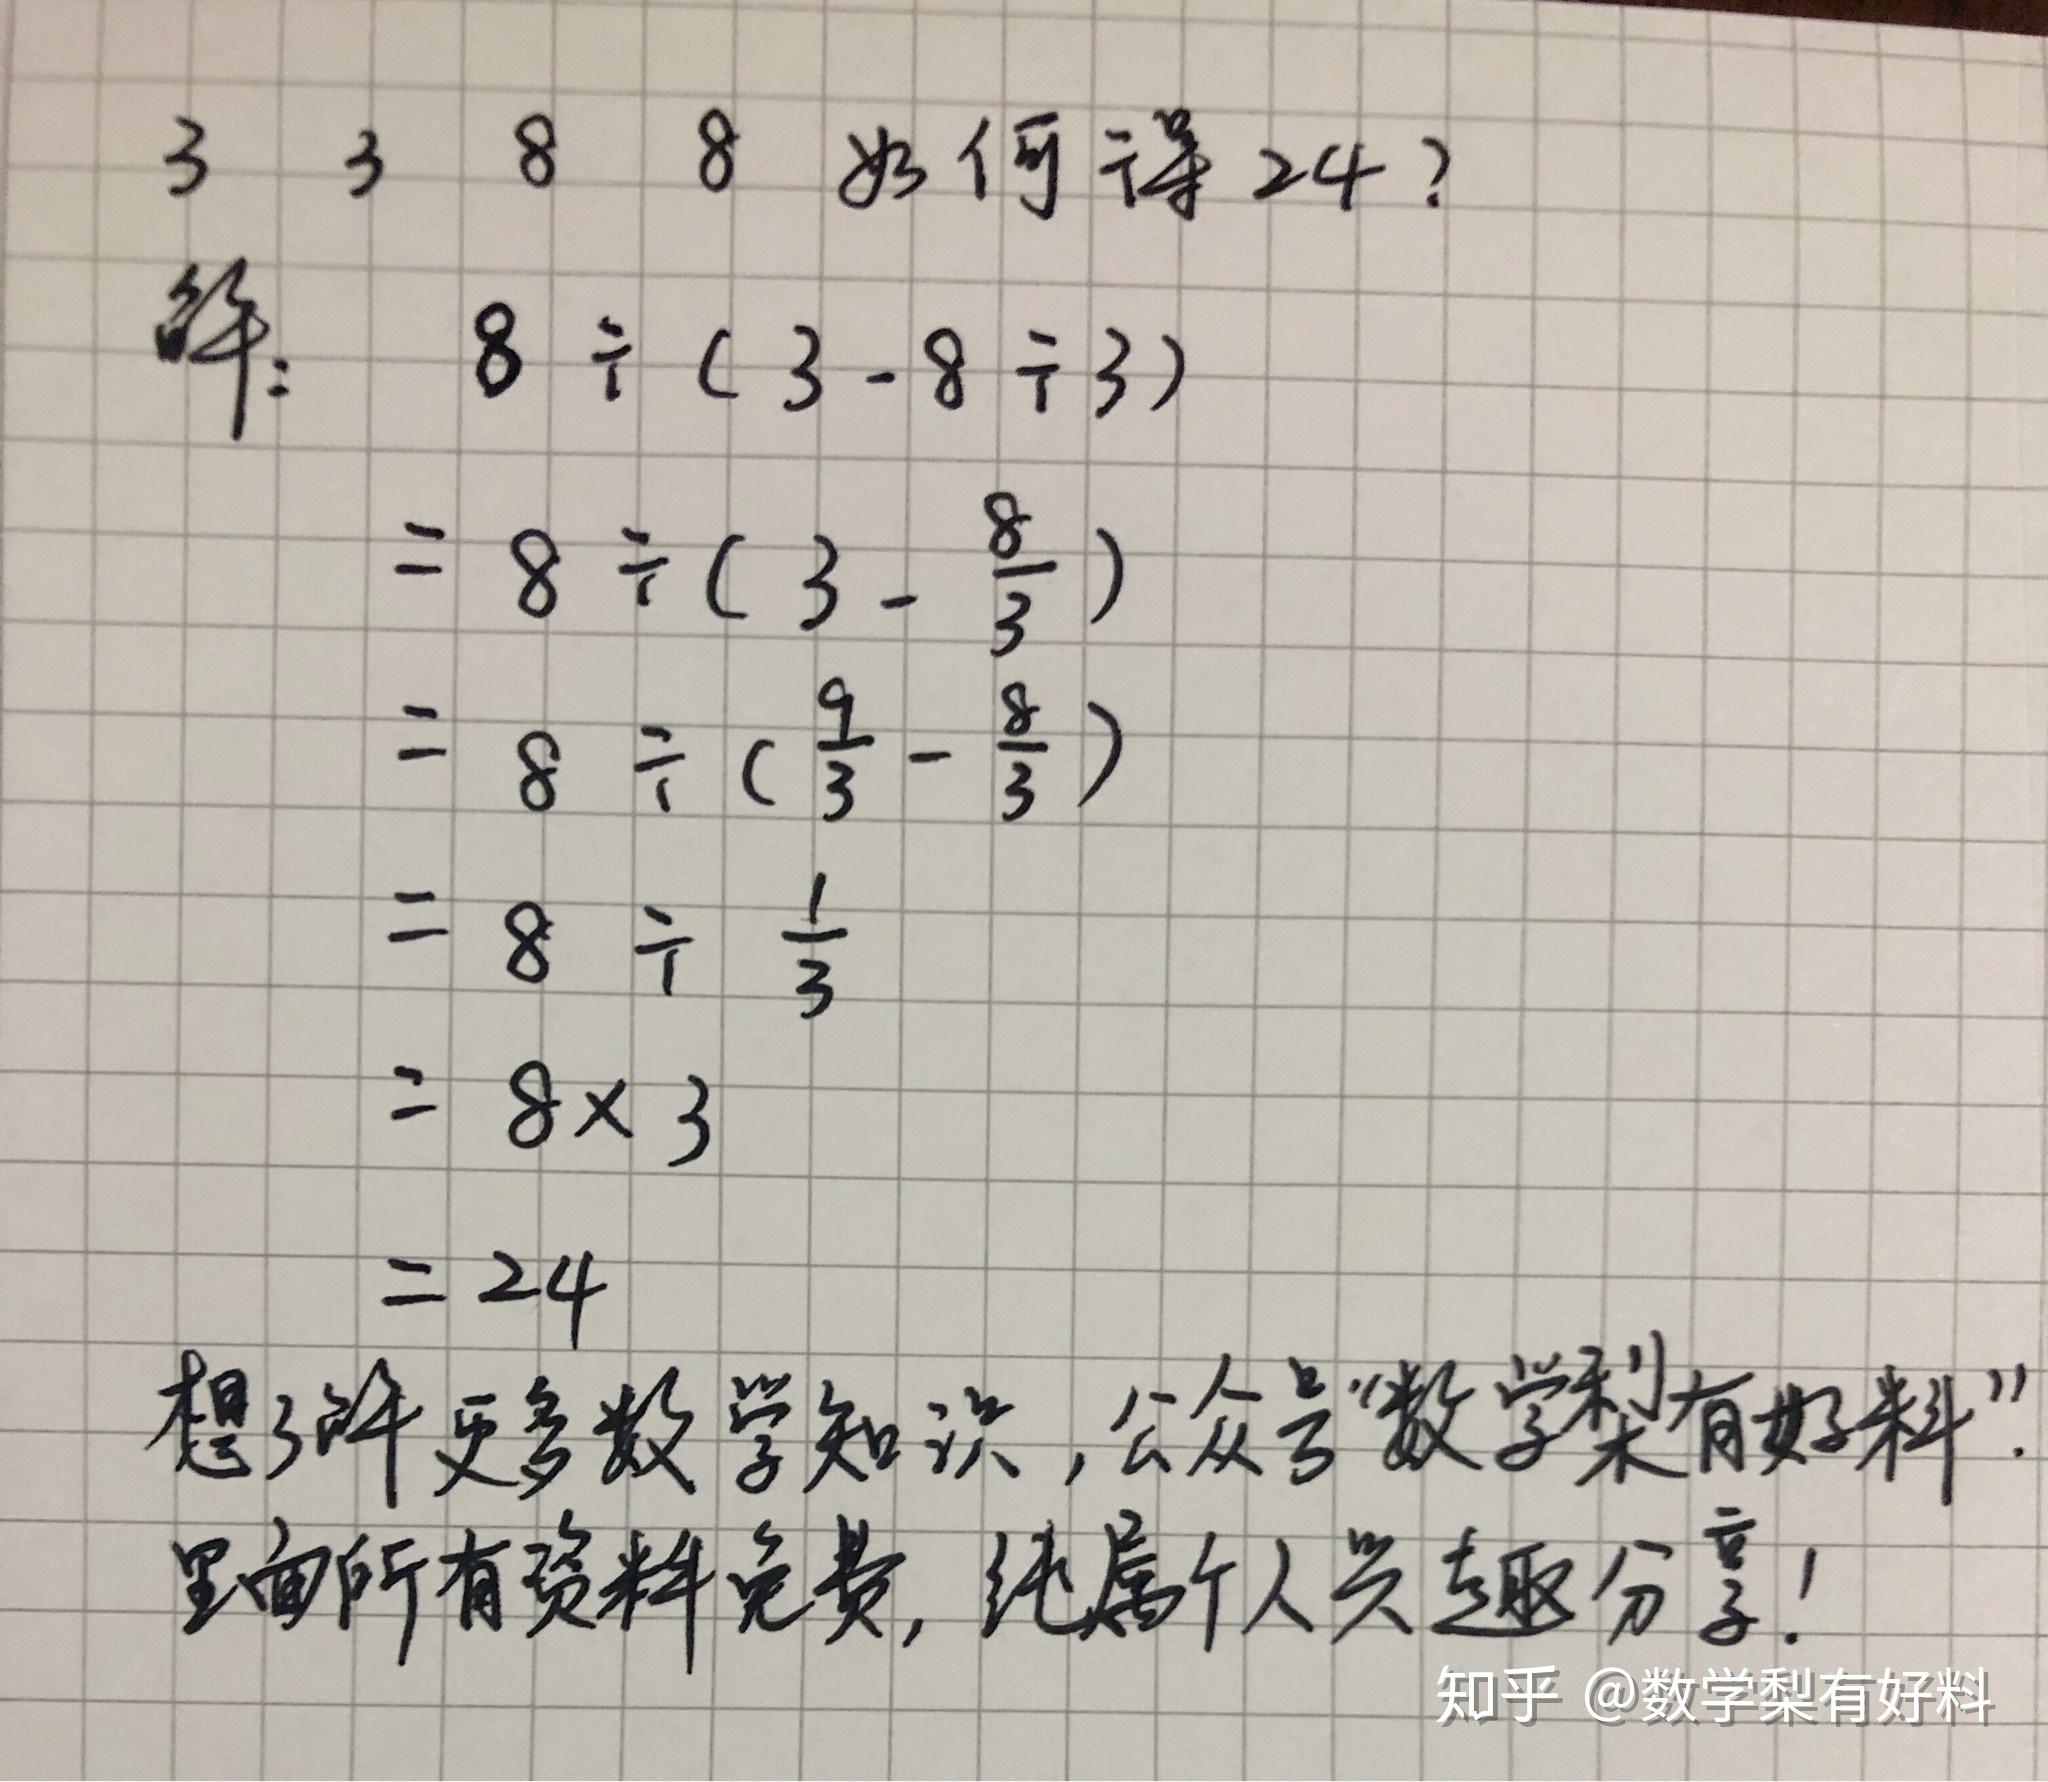 3 3 8 8 如何得24?
解: 8÷(3-8÷3)
=8÷(3-8/3)
=8÷(9/3-8/3)
=8÷1/3
=8×3
=24
想了解更多数学知识,公众号“数学梨有好料”.
里面所有资料免费,纯属个人兴趣分享!
知乎 @数学梨有好料